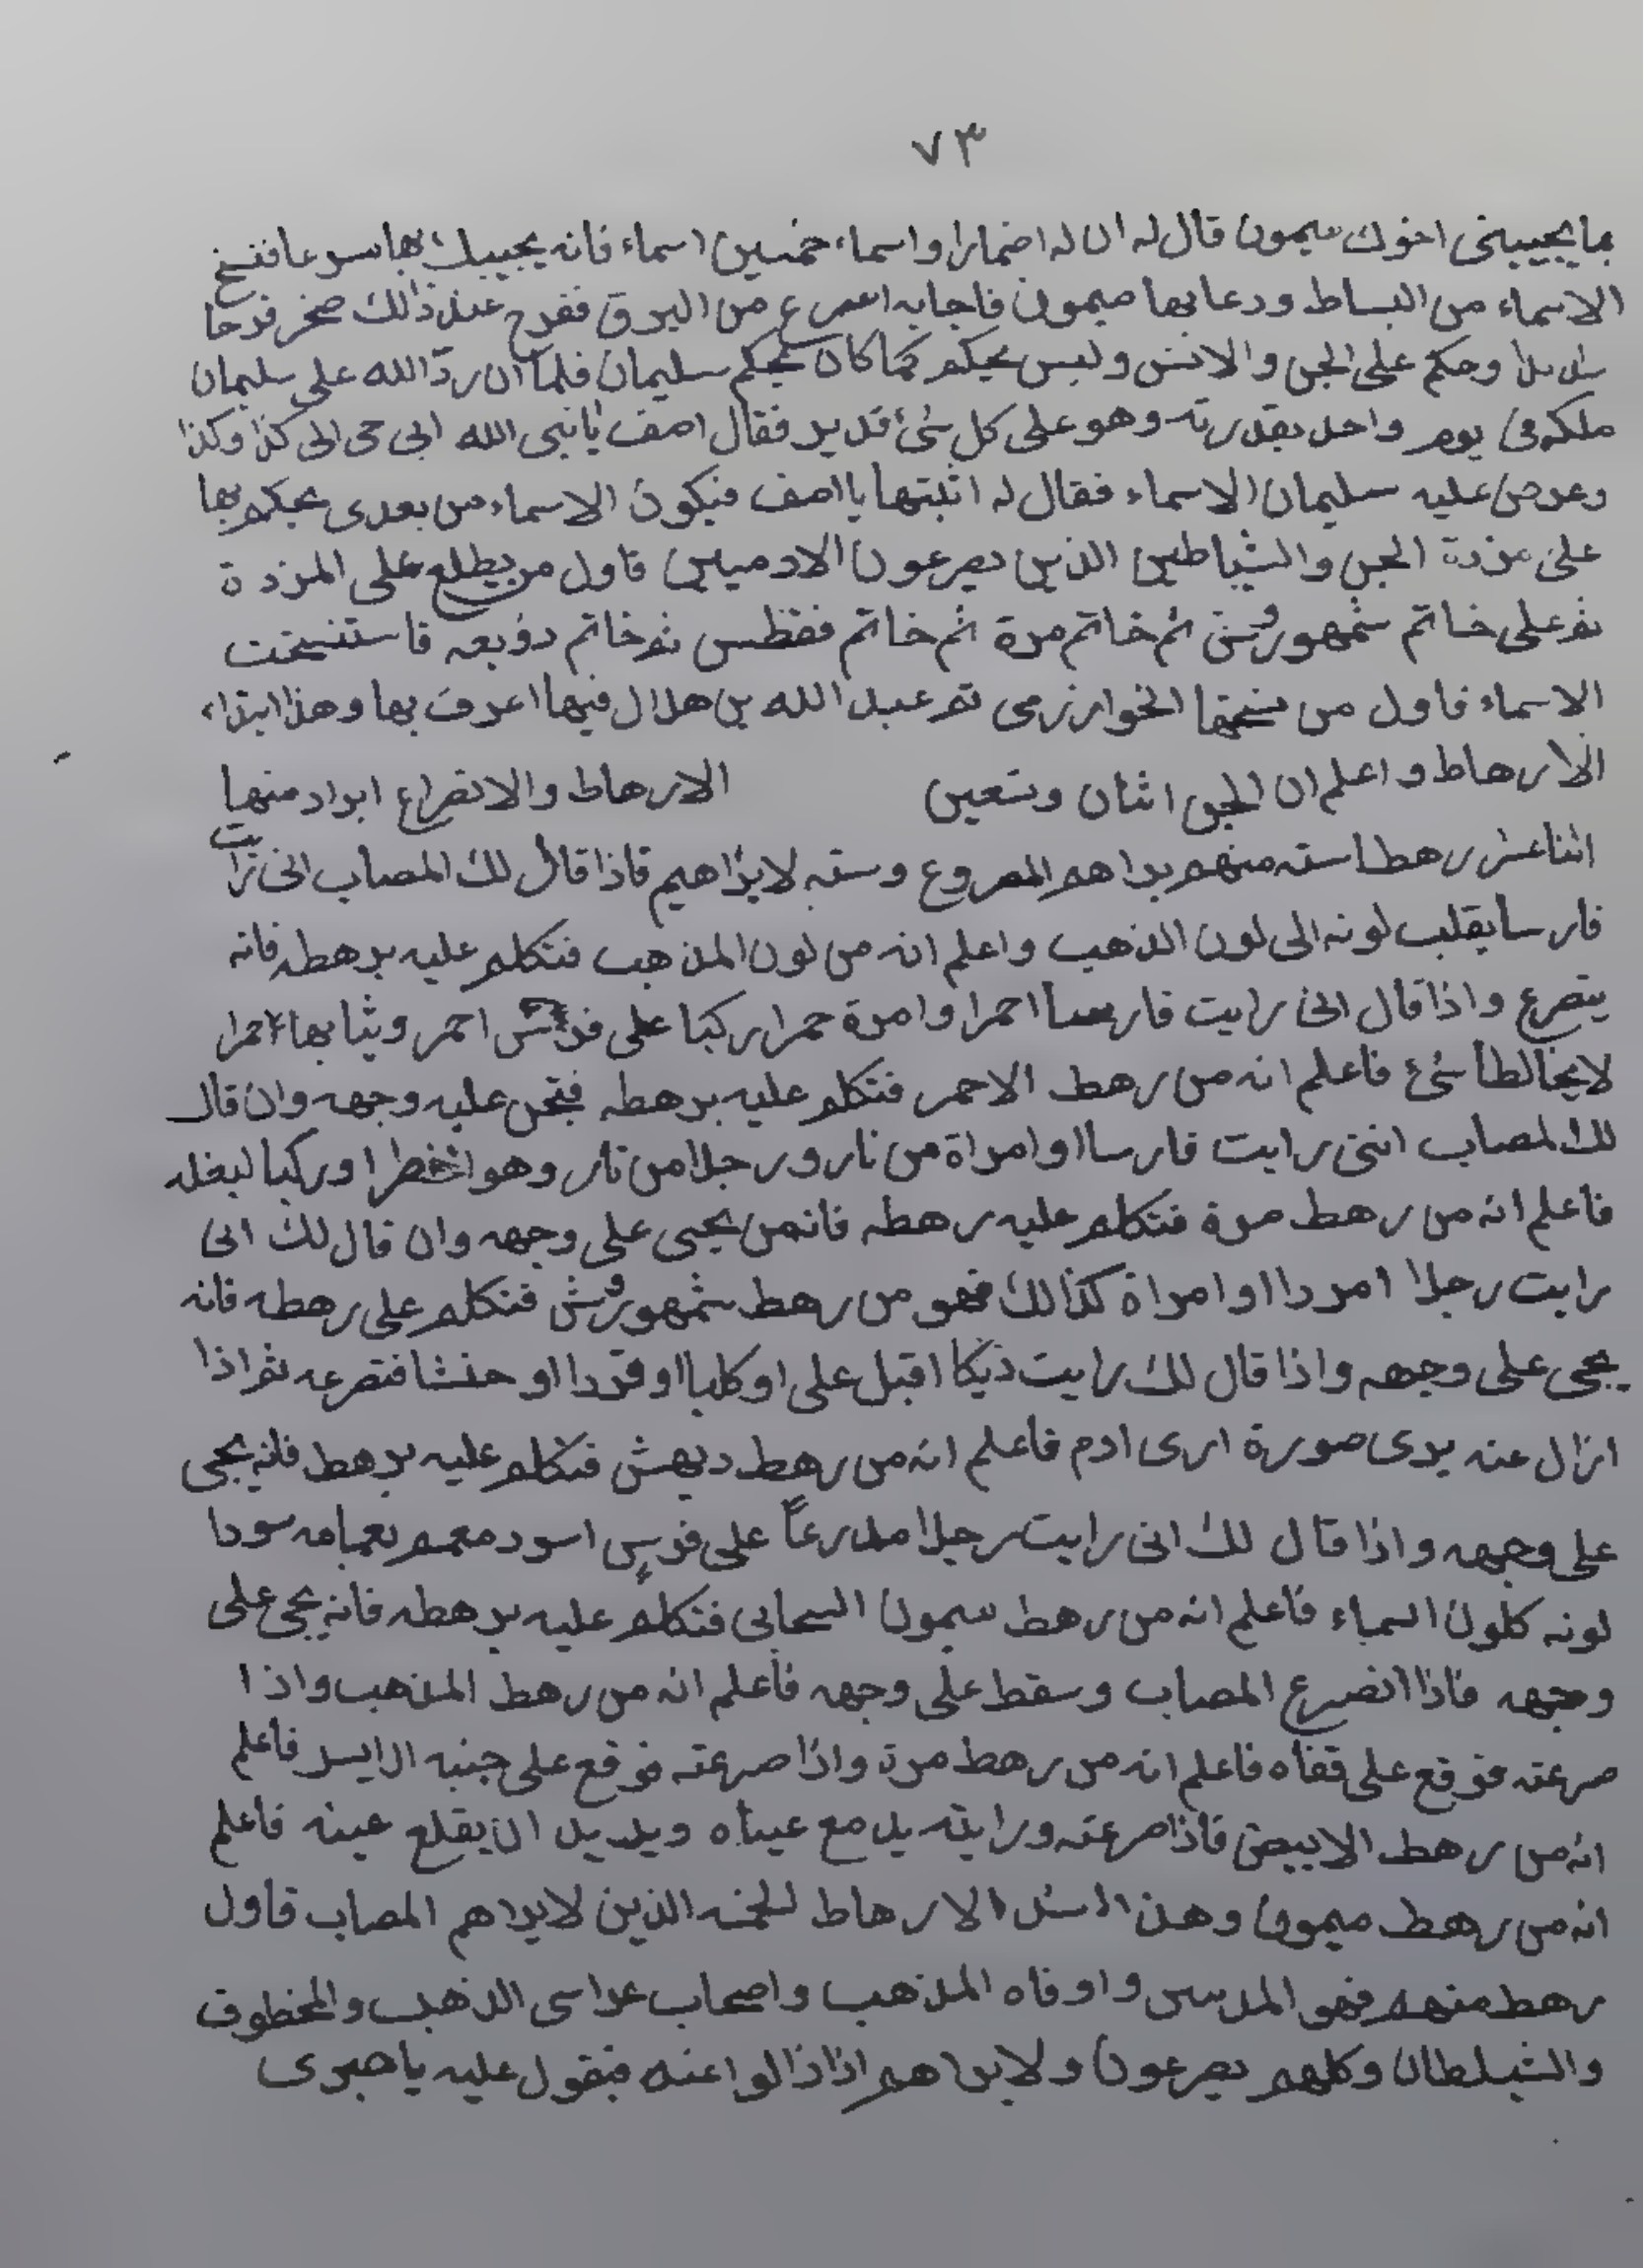 ٧٣
بما يجيبنى اخوك ميمون قال له ان له اضمارا واسماء خمسين اسماء فانه يجيبك بها سرعا فنسخ
الاسماء من البساط ودعا بها ميمون فاجابه اسرع من البرق ففرح عند ذالك صخر فرحا
وحكم على الجن والانس وليس يحكم كما كان يحكم سليمان فلما ان ردّ الله على سليمان
ملكه فى يوم واحد بقدرته وهو على كل شئ قدير فقال اصف يا نبى الله الى كذا وكذا
وعرض عليه سليمان الاسماء فقال له اثبتها يا اصف فيكون الاسماء من بعدى يحكم بها
على مردة الجن والشياطين الذين يصرعون الادميين فاول من يطلع على المردة
ثم على خاتم شمهورش ثم خاتم مرة ثم خاتم فقطس ثم خاتم دوبعه فاستنسخت
الاسماء فاول من نسختها الخوارزمى ثم عبد الله بن هلال فيها اعرف بها وهذا ابتداء
الارهاط واعلم ان الجن اثنان وتسعين الارهاط والاتقراع ابواد منها
اثنا عشر رهطا سته منهم يراهم المصروع وسته لا يراهيم فاذا قال لك المصاب انى رايت
فارسا يقلب لونه الى لون الذهب واعلم انه من لون المذهب فتكلم عليه برهطه فانه
يتصرع واذا قال انى رايت فارسا احمرا وامرة حمرا ركبا على فرس احمر وثيابها احمرا
لا يخالطا شئ فاعلم انه من رهط الاحمر فتكلم عليه برهطه عليه وجهه وان قال
لك لمصاب اننى رايت فارسا او امراة من نار ورجلا من نار وهو اخطرا وركبا لبغله
فاعلم انه من رهط مرة فتكلم عليه رهطه يحيى على وجهه وان قال لك انى
رايت رجلا امردا او امراة كذالك فهو من رهط شمهورش فتكلم على رهطه فانه
يجى على وجهه واذا قال لك رايت ديكا اقبل على او كلبا او قردا او حنشا فتصرعه ثم اذا
انزال عنه يرى صورة ارى ادم فاعلم انه من رهط دبهش فتكلم عليه برهط فانه يجى
على وجهه واذا قال لك انى رايت رجلا مدرعاً على فرس اسود معمم بعمامه سودا
لونه كلون السماء فاعلم انه من رهط ميمون السحابى فتكلم عليه برهطه فانه يجئ على
وجهه فاذا انصرع المصاب وسقط على وجهه فاعلم انه من رهط المذهب واذا
صرعته فوقع على قفاه فاعلم انه من رهط مرة واذا صرعته فوقع على جنبه الايسر فاعلم
انه من رهط الابيض فاذا صرعته ورايته يدمع عيناه ويريد ان يقلع عينه فاعلم
انه من رهط ميمون الارهاط الذين لا يراهم المصاب فاول
رهط منهم فهو واوفاه المذهب واصحاب الذهب والمخطوف
والشيطان وكلهم يصرعون ولا يراهم اذا ذالوا عنه فيقول عليه يا